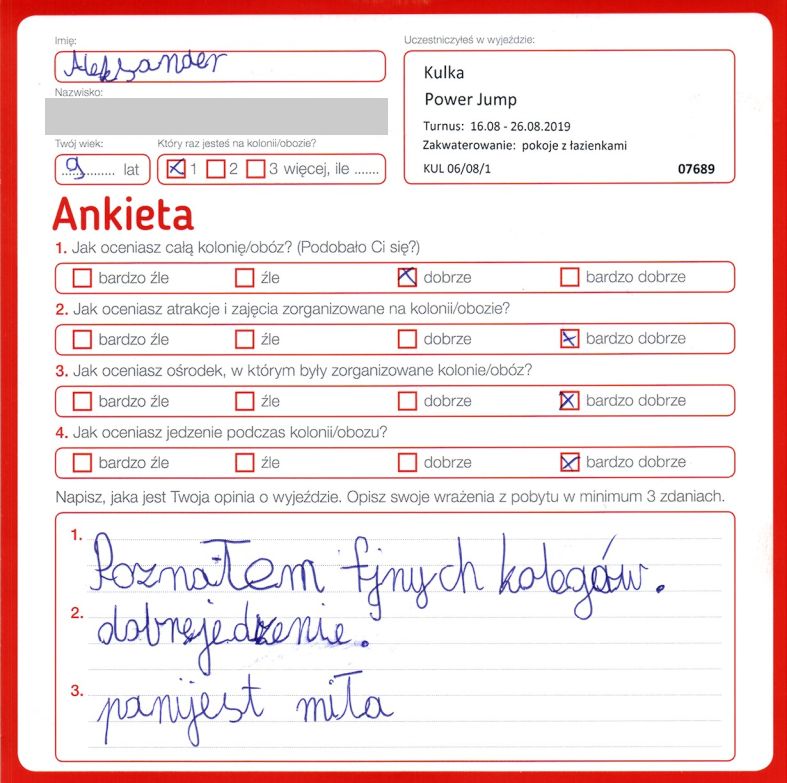 Imię:
Aleksander
Uczestniczyłeś w wyjeździe:
Kulka
Power Jump
Turnus: 16.08 - 26.08.2019
Zakwaterowanie: pokoje z łazienkami
KUL 06/08/1 07689
Nazwisko:
Twój wiek:
9 lat
Który raz jesteś na kolonii/obozie?
1 2 3 więcej, ile .......
Ankieta
1. Jak oceniasz całą kolonię/obóz? (Podobało Ci się?)
bardzo źle źle dobrze bardzo dobrze
2. Jak oceniasz atrakcje i zajęcia zorganizowane na kolonii/obozie?
bardzo źle źle dobrze bardzo dobrze
3. Jak oceniasz ośrodek, w którym były zorganizowane kolonie/obóz?
bardzo źle źle dobrze bardzo dobrze
4. Jak oceniasz jedzenie podczas kolonii/obozu?
bardzo źle źle dobrze bardzo dobrze
Napisz, jaka jest Twoja opinia o wyjeździe. Opisz swoje wrażenia z pobytu w minimum 3 zdaniach.
1. Poznałem fjnych kolegów.
2. dobrejedzenie.
3. panijest miła